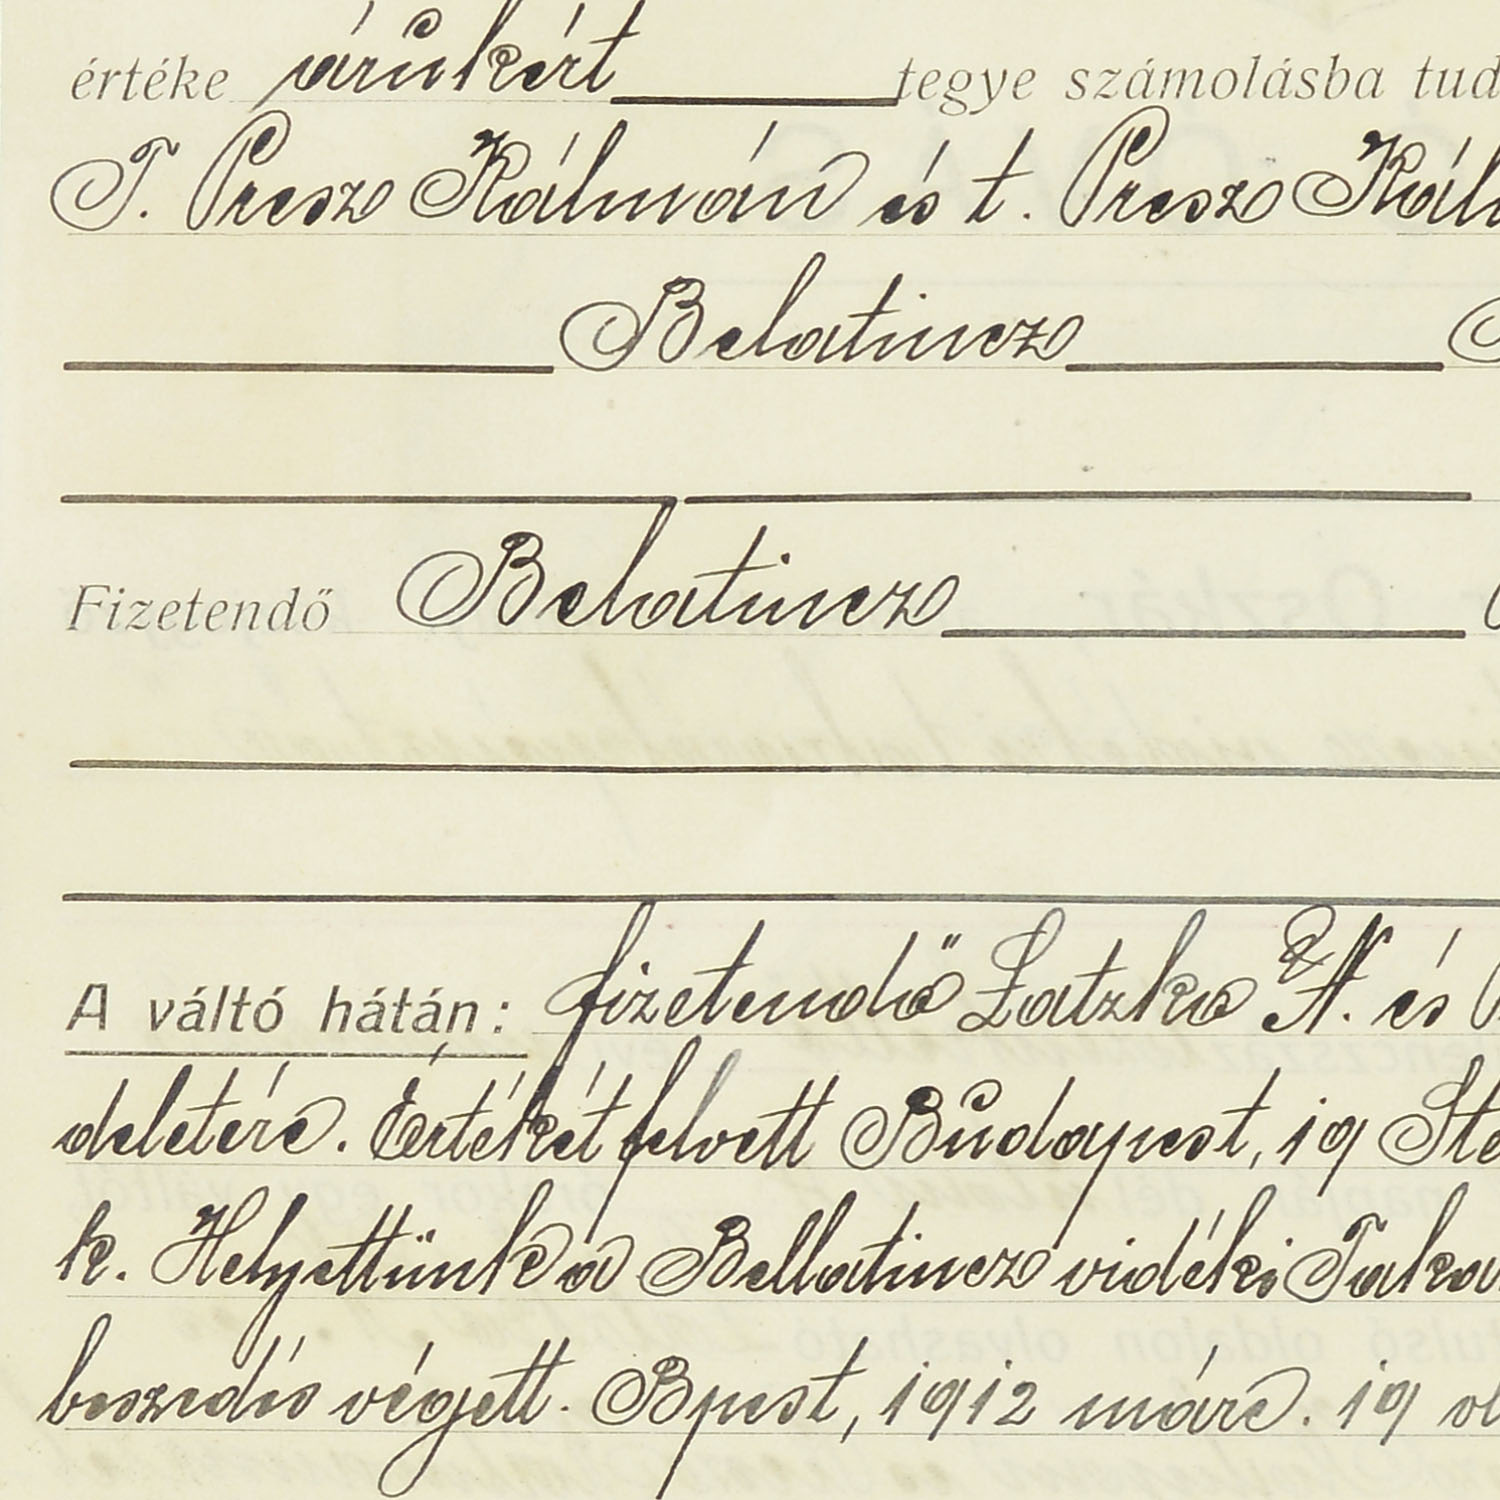 értéke árukért tegye számolásba tud
T. Presz Kálmán és t. Presz Kál
Belatincz
Fizetendő Belatincz
A váltó hátán: fizetendő Latzko A. és
deletére. Értékét felvett Budapest, 19
k. Helyettünk a Bellatincz vidéki Taka
beszedés végett. Bpest, 1912 márc. 19